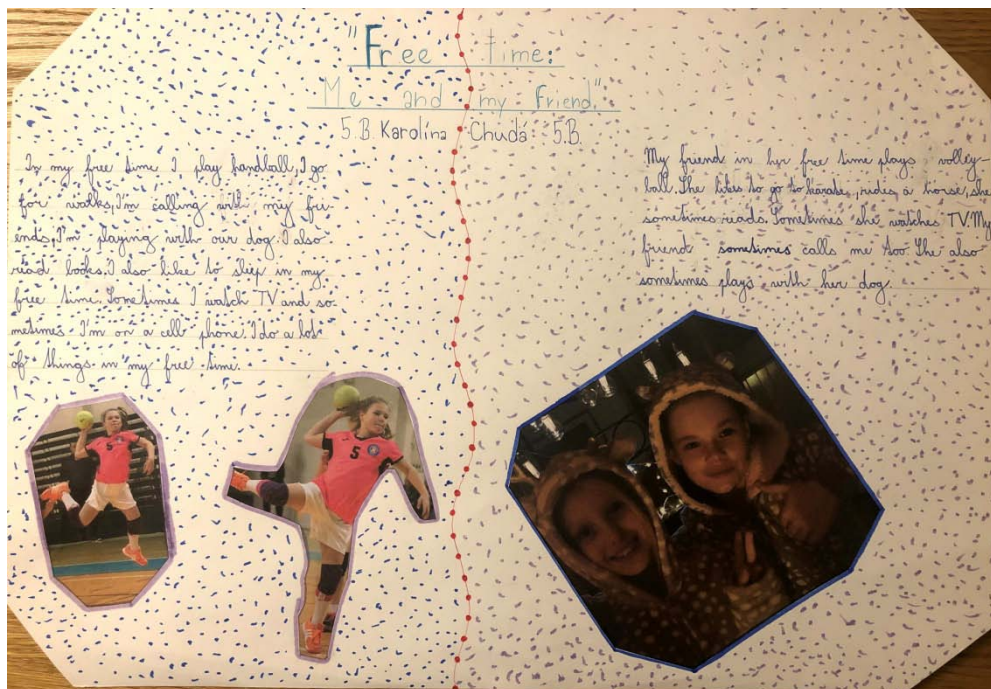 "Free time:
Me and my Friend."
5.B. Karolína Chudá 5.B.
In my free time I play handball, I go
for walks, I'm calling with my fri-
ends, I'm playing with our dog. I also
read books. I also like to sleep in my
free time. Sometimes I watch TV and so-
metimes I'm on a cell phone. I do a lot
of things in my free time.
My friend in her free time plays volley-
ball. She likes to go to karate, rides a horse, she
sometimes reads. Sometimes she watches TV. My
friend sometimes calls me too. She also
sometimes plays with her dog.
5
5